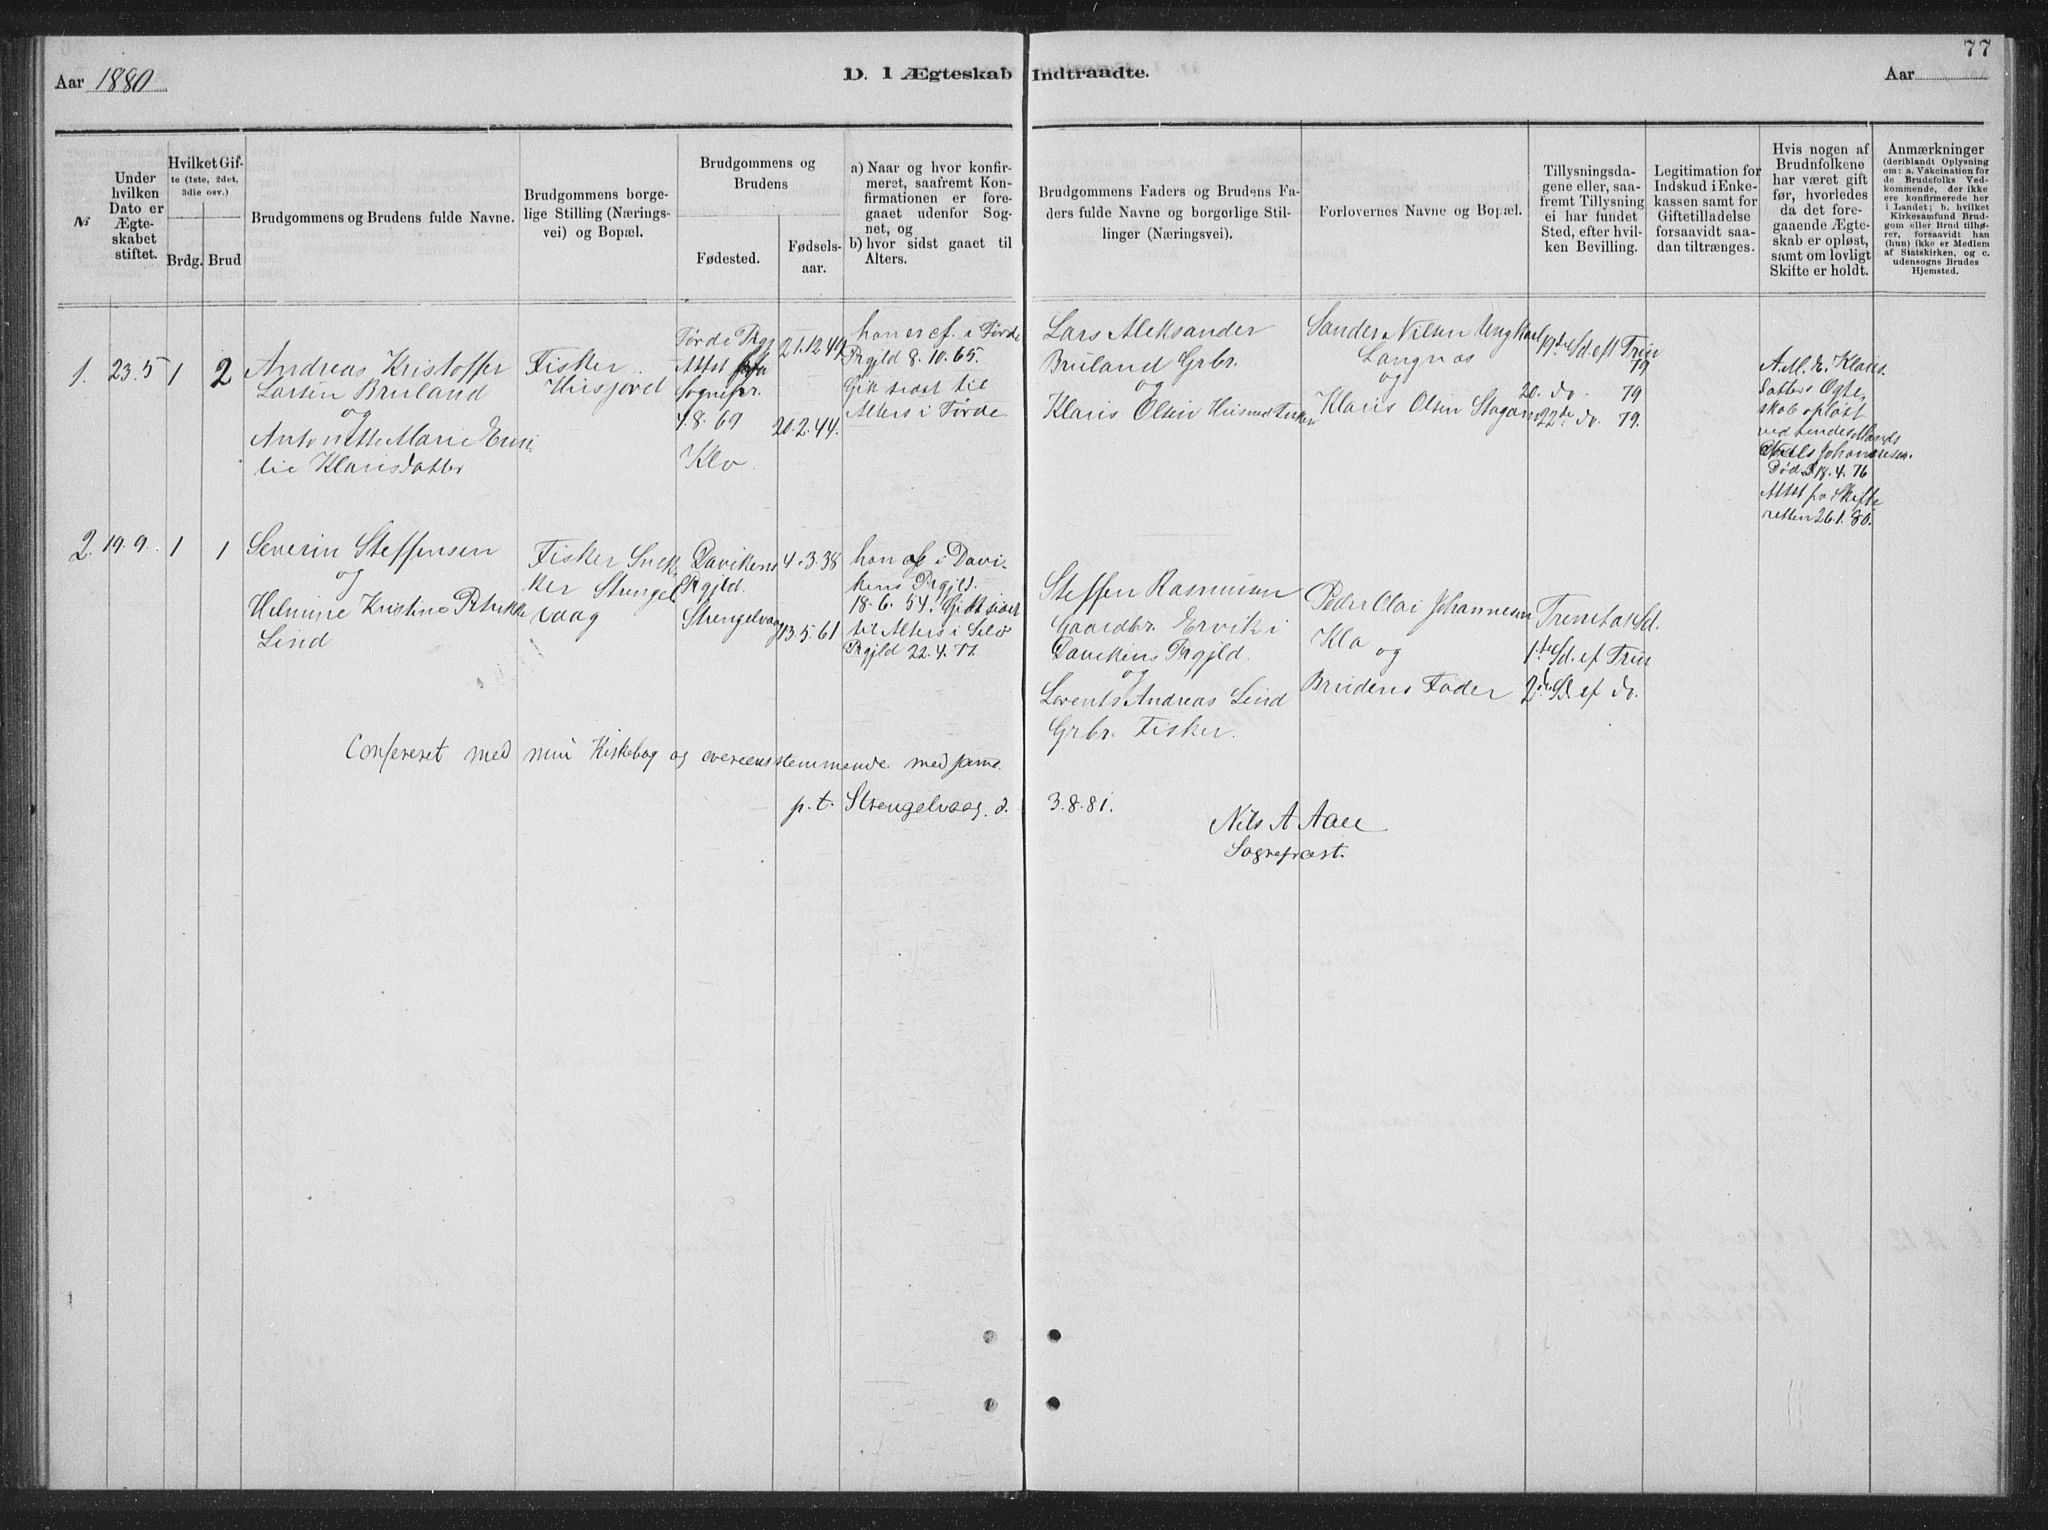 77
Aar 1880
D. I Ægteskab Indtraadte.
Aar
№
Under hvilken Dato er Ægteskabet stiftet.
Hvilket Gifte (1ste, 2det, 3die osv.)
Brdg. Brud
Brudgommens og Brudens fulde Navne.
Brudgommens borgelige Stilling (Næringsvei) og Bopæl.
Brudgommens og Brudens
Fødested.
Fødselsaar.
a) Naar og hvor konfirmeret, saafremt Konfirmationen er foregaaet udenfor Sognet, og
b) hvor sidst gaaet til Alters.
Brudgommens Faders og Brudens Faders fulde Navne og borgerlige Stillinger (Næringsvei).
Forlovernes Navne og Bopæl.
Tillysningsdagene eller, saafremt Tillysning ei har fundet Sted, efter hvilken Bevilling.
Legitimation for Indskud i Enkekassen samt for Giftetilladelse forsaavidt saadan tiltrænges.
Hvis nogen af Brudnfolkene har været gift før, hvorledes da det foregaaende Ægteskab er opløst, samt om lovligt Skifte er holdt.
Anmærkninger
(deriblandt Oplysning om: a. Vakcination for de Brudefolks Vedkommende, der ikke ere konfirmerede her i Landet; b. hvilket Kirkesamfund Brudgom eller Brud tilhører, forsaavidt han (hun) ikke er Medlem af Statskirken, og c. udensogns Brudes Hjemsted.
1. 23.5 1 2
Andreas Kristoffer
Larsen Bruland
og
Antonette Marie Emi
lie Klausdatter
Fisker
Husjord
Førde Prgj
Attst fra
Sognepr.
4.8.69
Klo
21.12.49
20.2.44.
han er cf. i Førde
Prgjld 8.10.65.
Gik sidst til
Alters i Førde.
Lars Aleksander
Bruland Grbr.
og
Klaus Olsen Husmd Fisker
Sander Nilsen Ungkarl
Langnes
og
Klaus Olsen
19de Sd. eft Trin
79
20. do. 79
22de do. 79.
A. M. E. Klaus
datters Ægte
skab opløst
ved hendes Mands
Nils Johannesen
Død 18.4.76
Attst fra Skifte
retten 26.1.80.
2. 19.9. 1 1
Severin Steffensen
og
Helmine Kristine Petrikke
Lind
Fisker Snek
ker Strengel
vaag
Davikens
Prgjld.
Strengelvaag
4.3.38
13.5.61
han cf i Davi
kens Prgjld.
18.6.54. Gik sidst
til Alters i
Prgjld 22.4.77.
Steffen Rasmusen
Gaardbr. Ervik i
Davikens Prgjld.
og
Lorents Andreas Lind
Grbr. Fisker.
Peder Olai Johannesen
Klo
og
Brudens Fader
Trinitat Sd.
1ste Sd. ef Trin
2den Sd. ef do.
Confereret med min Kirkebog og overeensstemmende med samme.
p. t. Strengelvaag. d. 3.8.81.
Nils A Aall
Sognepræst.